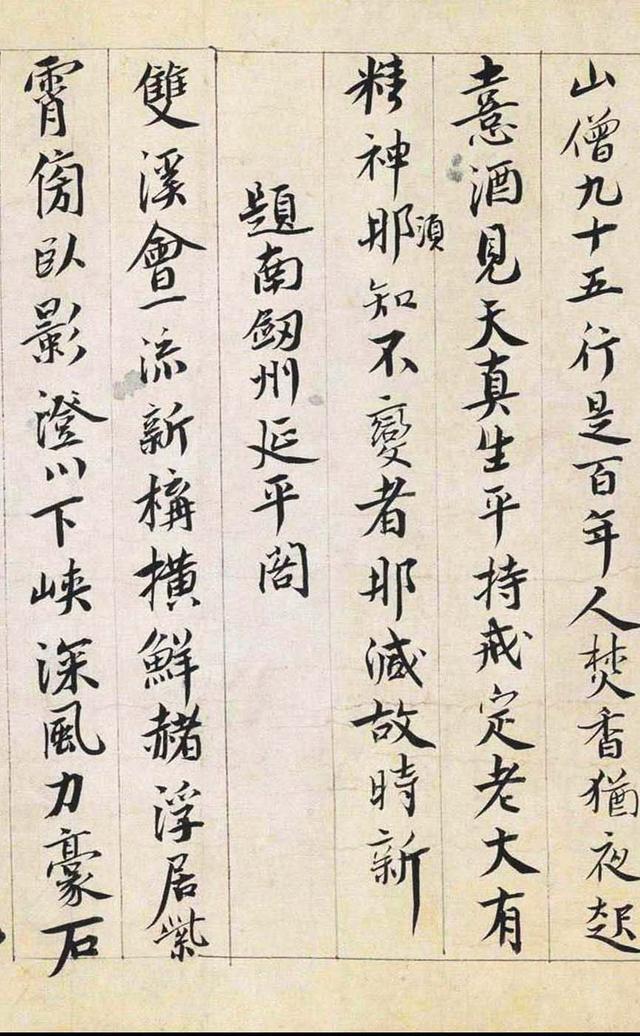 山僧九十五行是百年人焚香猶夜起
憙酒見天真生平持戒定老大有
精神那須知不變者那減故時新
題南劔州延平閣
雙溪會一流新構橫鮮赭浮居紫
霄傍臥影澄川下峽深風力豪石